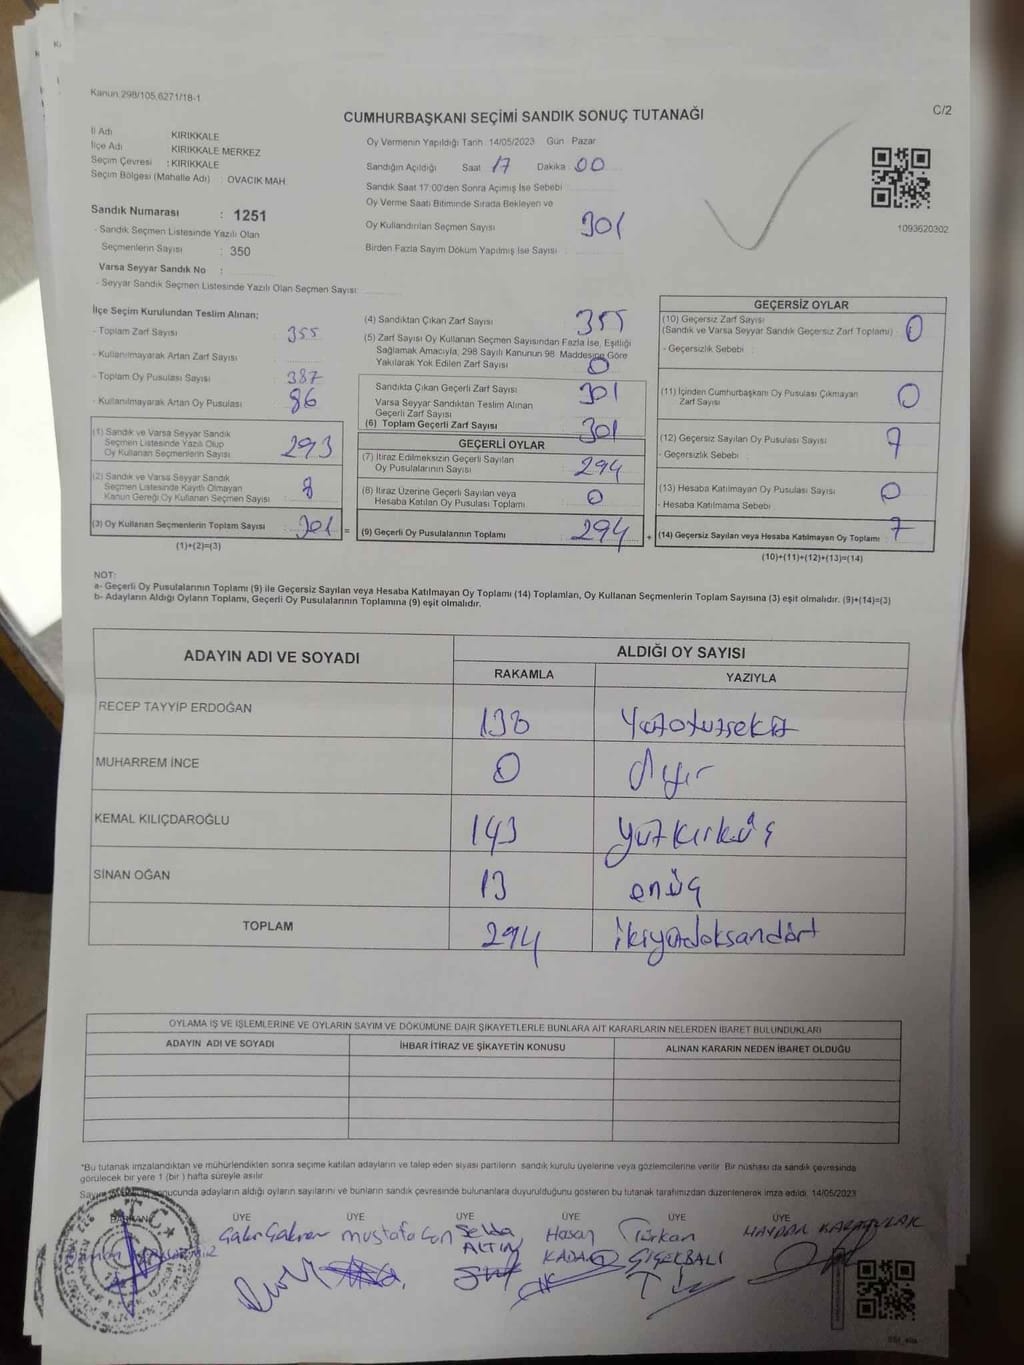 Kanun 298/105,6271/18-1
C/2
CUMHURBAŞKANI SEÇİMİ SANDIK SONUÇ TUTANAĞI
İl Adı KIRIKKALE
İlçe Adı KIRIKKALE MERKEZ
Seçim Çevresi : KIRIKKALE
Seçim Bölgesi (Mahalle Adı) : OVACIK MAH.
Sandık Numarası : 1251
- Sandık Seçmen Listesinde Yazılı Olan
Seçmenlerin Sayısı : 350
Varsa Seyyar Sandık No :
- Seyyar Sandık Seçmen Listesinde Yazılı Olan Seçmen Sayısı:
Oy Vermenin Yapıldığı Tarih : 14/05/2023 Gün : Pazar
Sandığın Açıldığı Saat : 17 Dakika : 00
Sandık Saat 17:00'den Sonra Açımış İse Sebebi
Oy Verme Saati Bitiminde Sırada Bekleyen ve
Oy Kullandırılan Seçmen Sayısı 301
Birden Fazla Sayım Döküm Yapılmış İse Sayısı :
1093620302
İlçe Seçim Kurulundan Teslim Alınan;
- Toplam Zarf Sayısı : 355
- Kullanılmayarak Artan Zarf Sayısı :
- Toplam Oy Pusulası Sayısı : 387
- Kullanılmayarak Artan Oy Pusulası : 86
(1) Sandık ve Varsa Seyyar Sandık
Seçmen Listesinde Yazılı Olup
Oy Kullanan Seçmenlerin Sayısı : 293
(2) Sandık ve Varsa Seyyar Sandık
Seçmen Listesinde Kayıtlı Olmayan
Kanun Gereği Oy Kullanan Seçmen Sayısı : 8
(3) Oy Kullanan Seçmenlerin Toplam Sayısı : 301 =
(1)+(2)=(3)
(4) Sandıktan Çıkan Zarf Sayısı : 355
(5) Zarf Sayısı Oy Kullanan Seçmen Sayısından Fazla İse, Eşitliği
Sağlamak Amacıyla, 298 Sayılı Kanunun 98. Maddesine Göre
Yakılarak Yok Edilen Zarf Sayısı : 0
Sandıkta Çıkan Geçerli Zarf Sayısı : 301
Varsa Seyyar Sandıktan Teslim Alınan
Geçerli Zarf Sayısı
(6) Toplam Geçerli Zarf Sayısı : 301
GEÇERLİ OYLAR
(7) İtiraz Edilmeksizin Geçerli Sayılan
Oy Pusulalarının Sayısı : 294
(8) İtiraz Üzerine Geçerli Sayılan veya
Hesaba Katılan Oy Pusulası Toplamı : 0
(9) Geçerli Oy Pusulalarının Toplamı : 294 +
GEÇERSİZ OYLAR
(10) Geçersiz Zarf Sayısı
(Sandık ve Varsa Seyyar Sandık Geçersiz Zarf Toplamı) : 0
- Geçersizlik Sebebi :
(11) İçinden Cumhurbaşkanı Oy Pusulası Çıkmayan
Zarf Sayısı : 0
(12) Geçersiz Sayılan Oy Pusulası Sayısı : 7
- Geçersizlik Sebebi :
(13) Hesaba Katılmayan Oy Pusulası Sayısı : 0
- Hesaba Katılmama Sebebi :
(14) Geçersiz Sayılan veya Hesaba Katılmayan Oy Toplamı : 7
(10)+(11)+(12)+(13)=(14)
NOT:
a- Geçerli Oy Pusulalarının Toplamı (9) ile Geçersiz Sayılan veya Hesaba Katılmayan Oy Toplamı (14) Toplamları, Oy Kullanan Seçmenlerin Toplam Sayısına (3) eşit olmalıdır. (9)+(14)=(3)
b- Adayların Aldığı Oyların Toplamı, Geçerli Oy Pusulalarının Toplamına (9) eşit olmalıdır.
ADAYIN ADI VE SOYADI ALDIĞI OY SAYISI
RAKAMLA YAZIYLA
RECEP TAYYİP ERDOĞAN 138 yüzotuzsekiz
MUHARREM İNCE 0
KEMAL KILIÇDAROĞLU 143 yüzkırküç
SİNAN OĞAN 13 onüç
TOPLAM 294 ikiyüzdoksandört
OYLAMA İŞ VE İŞLEMLERİNE VE OYLARIN SAYIM VE DÖKÜMÜNE DAİR ŞİKAYETLERLE BUNLARA AİT KARARLARIN NELERDEN İBARET BULUNDUKLARI
ADAYIN ADI VE SOYADI İHBAR İTİRAZ VE ŞİKAYETİN KONUSU ALINAN KARARIN NEDEN İBARET OLDUĞU
*Bu tutanak imzalandıktan ve mühürlendikten sonra seçime katılan adayların ve talep eden siyasi partilerin sandık kurulu üyelerine veya gözlemcilerine verilir. Bir nüshası da sandık çevresinde
görülecek bir yere 1 (bir) hafta süreyle asılır
sonucunda adayların aldığı oyların sayılarını ve bunların sandık çevresinde bulunanlara duyurulduğunu gösteren bu tutanak tarafımızdan düzenlenerek imza edildi. 14/05/2023
BAŞKAN ÜYE ÜYE ÜYE ÜYE ÜYE ÜYE
mustafa Can Selda Hasan Türkan HAYDAR KARAOĞLAK
ALTIN KADAŞ ÇİÇEKBALI